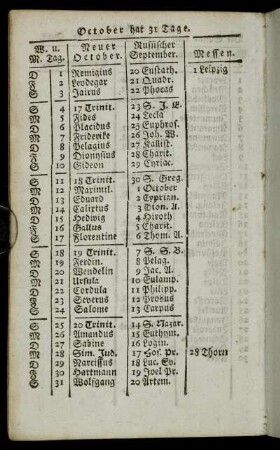 October hat 31 Tage.
W. u. Neuer Russischer
M. Tag. October. September. Messen.
D 1 Remigius 20 Eustath. 1 Leipzig
F 2 Leodegar 21 Quadr.
S 3 Jairus 22 Phocas
S 4 17 Trinit. 23 S. J. E.
M 5 Fides 24 Tecla
D 6 Placidus 25 Euphros.
M 7 Friderike 26 Joh. W.
D 8 Pelagius 27 Kallist.
F 9 Dionysius 28 Charit.
S 10 Gideon 29 Cyriac.
S 11 18 Trinit. 30 S. Greg.
M 12 Maximil. 1 October
D 13 Eduard 2 Cyprian.
M 14 Calixtus 3 Dion. A.
D 15 Hedwig 4 Hiroth
F 16 Gallus 5 Charit.
S 17 Florentine 6 Thom. A.
S 18 19 Trinit. 7 S. S. B.
M 19 Ferdin. 8 Pelag.
D 20 Wendelin 9 Jac. A.
M 21 Ursula 10 Eulamp.
D 22 Cordula 11 Philipp.
F 23 Severus 12 Probus
S 24 Salome 13 Carpus
S 25 20 Trinit. 14 S. Nazar.
M 26 Amandus 15 Euthym.
D 27 Sabine 16 Login.
M 28 Sim. Jud. 17 Hos. Pr. 28 Thorn
D 29 Narcissus 18 Luc. Ev.
F 30 Hartmann 19 Joel Pr.
S 31 Wolfgang 20 Artem.